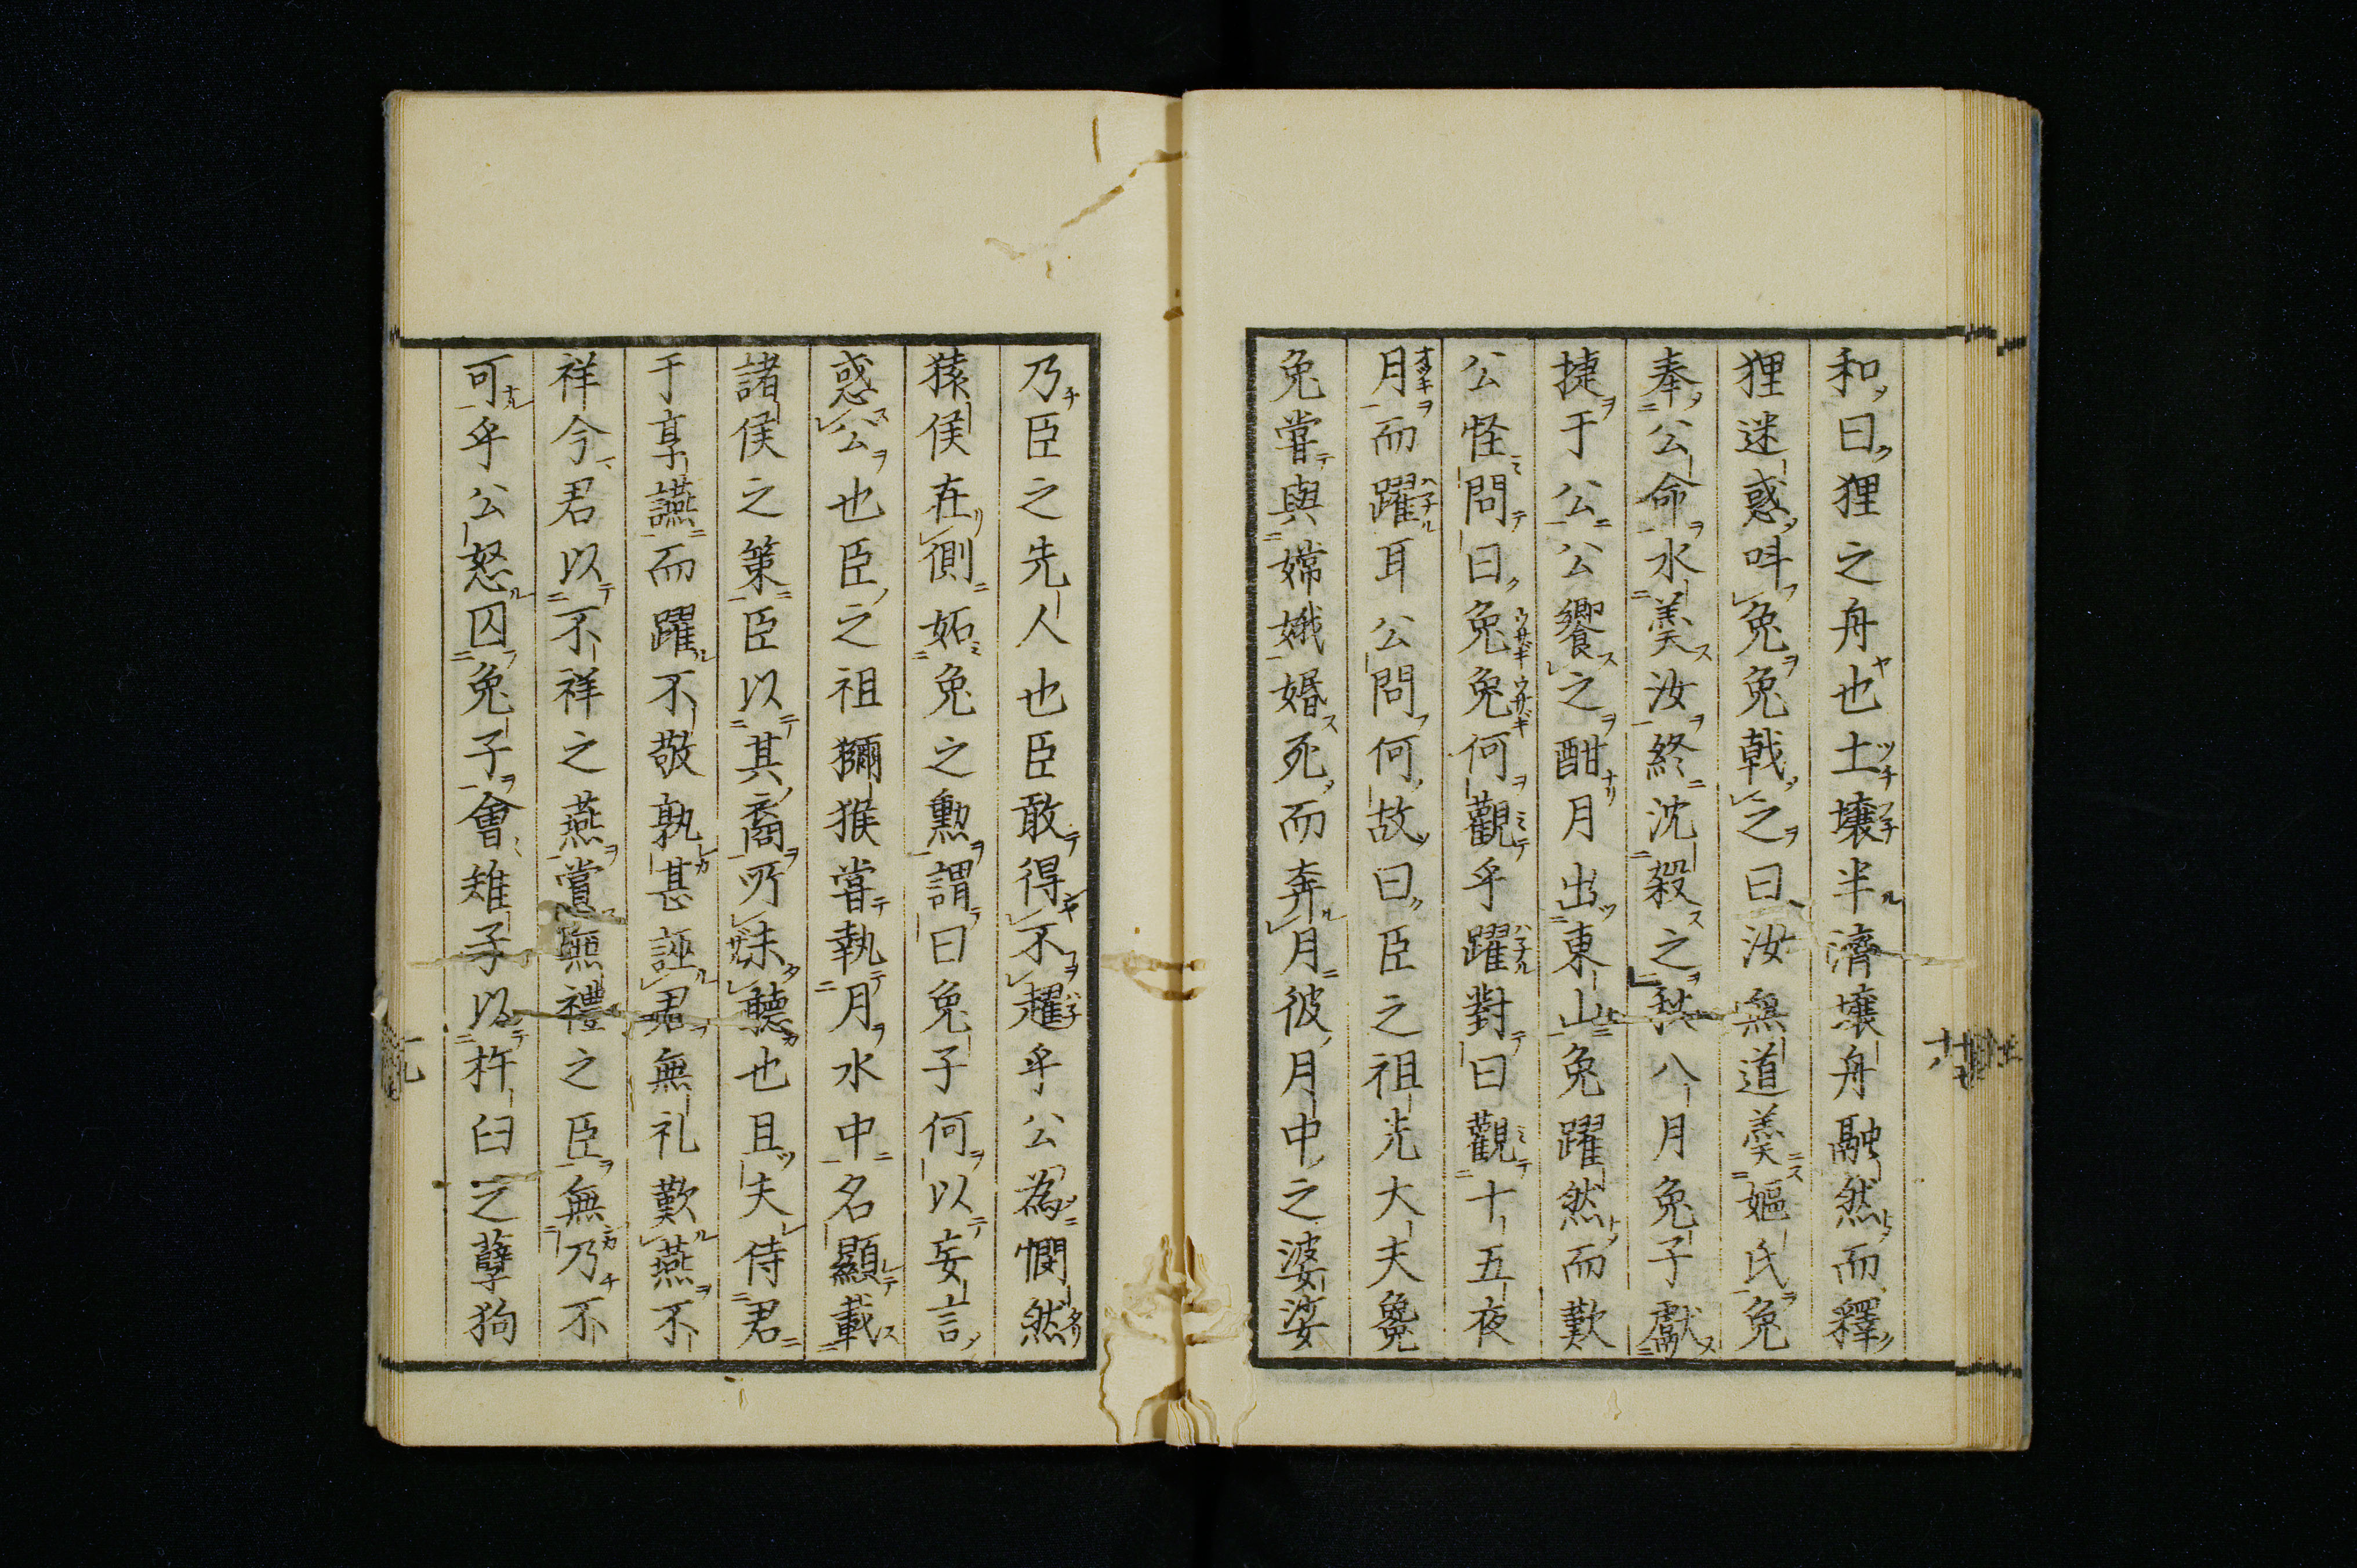 和曰狸之舟也土壌半濟壌舟融然而釋
狸迷惑呌兔兔戟之曰汝無道羮嫗氏兔
奉公命水羮汝終沈殺之秋八月兔子獻
捷于公公饗之酣月出東山兔躍然而歎
公怪問曰兔兔何觀乎躍對曰觀十五夜
月而躍耳公問何故曰臣之祖先大夫毚
兔嘗與嫦娥婚死而奔月彼月中之婆娑
乃臣之先人也臣敢得不趯乎公為憫然
猿侯在側妬兔之勲謂曰兔子何以妄言
惑公也臣之祖獼猴嘗執月水中名顯載
諸侯之策臣以其裔所未聽也且夫侍君
于享讌而躍不敬孰甚誣君無礼歎燕不
祥今君以不祥之燕賞無禮之臣無乃不
可乎公怒囚兔子會雉子以杵臼之孽狗